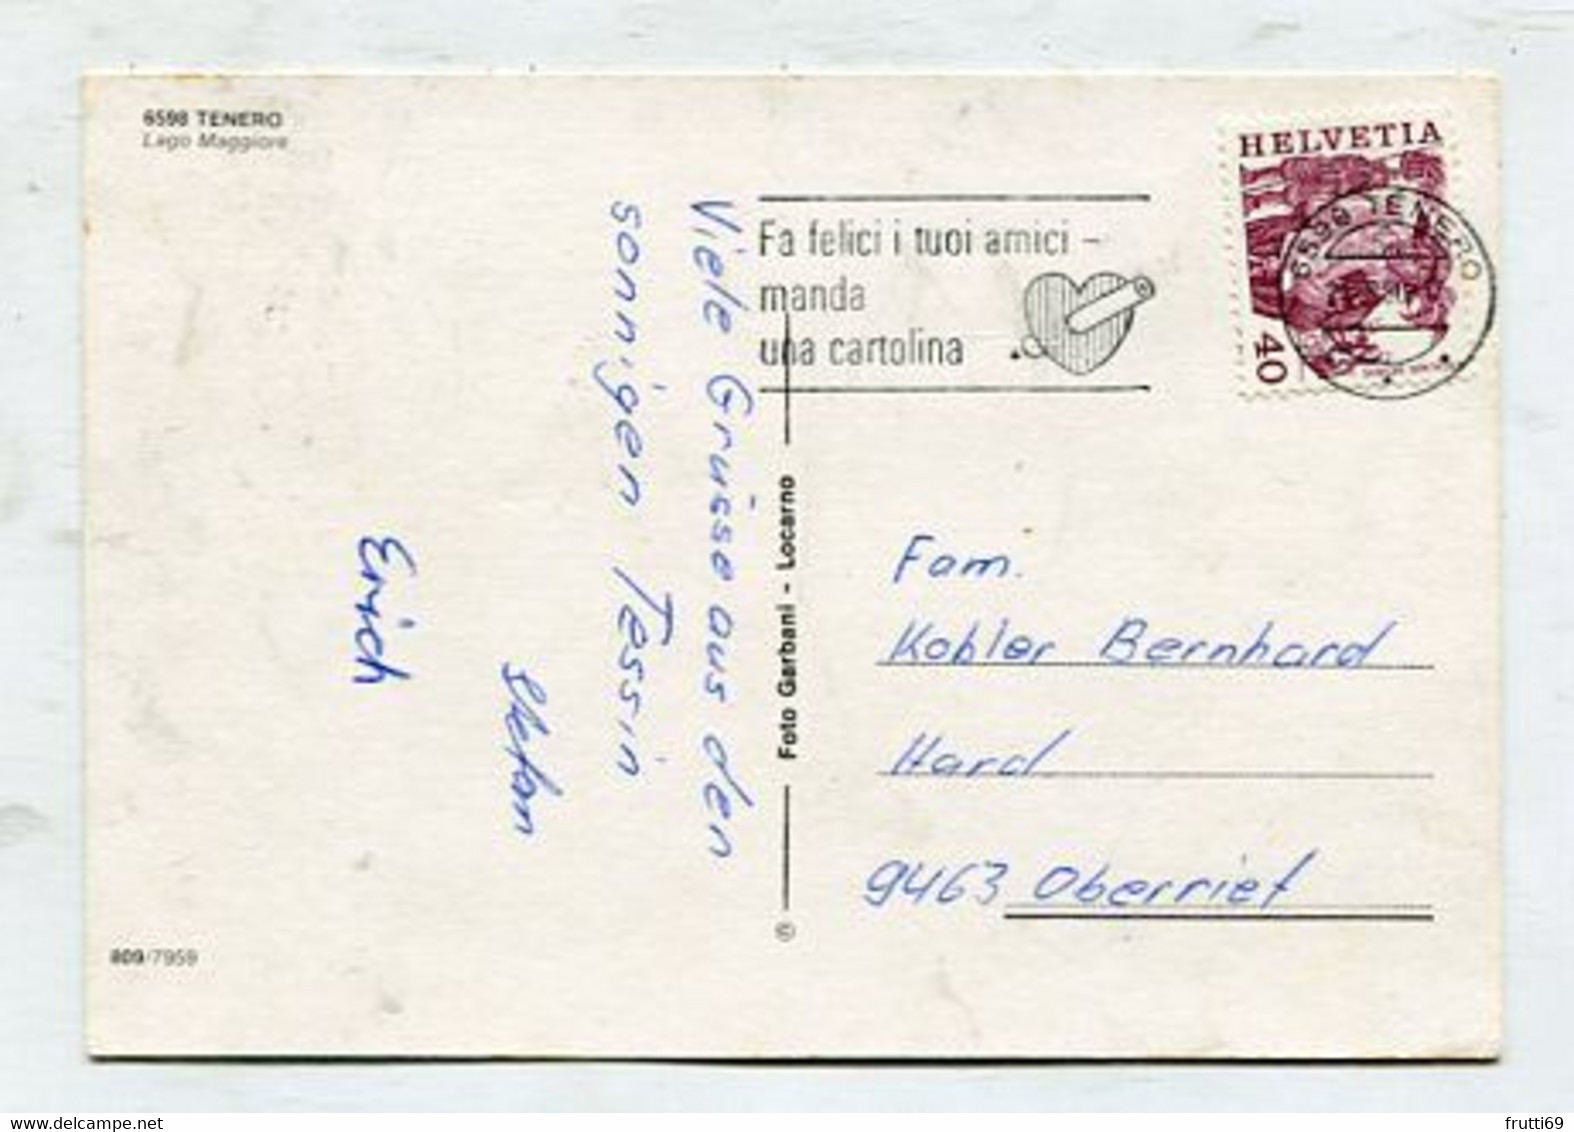 6598 TENERO
Lago Maggiore
HELVETIA
40
6598 TENERO
Fa felici i tuoi amici –
manda
una cartolina
Viele Grüsse aus den
sonnigen Tessin
Stefan
Erich
© Foto Garbani - Locarno
Fam.
Kobler Bernhard
Hard
9463 Oberriet
809/7959
delcampe.net
frutti69